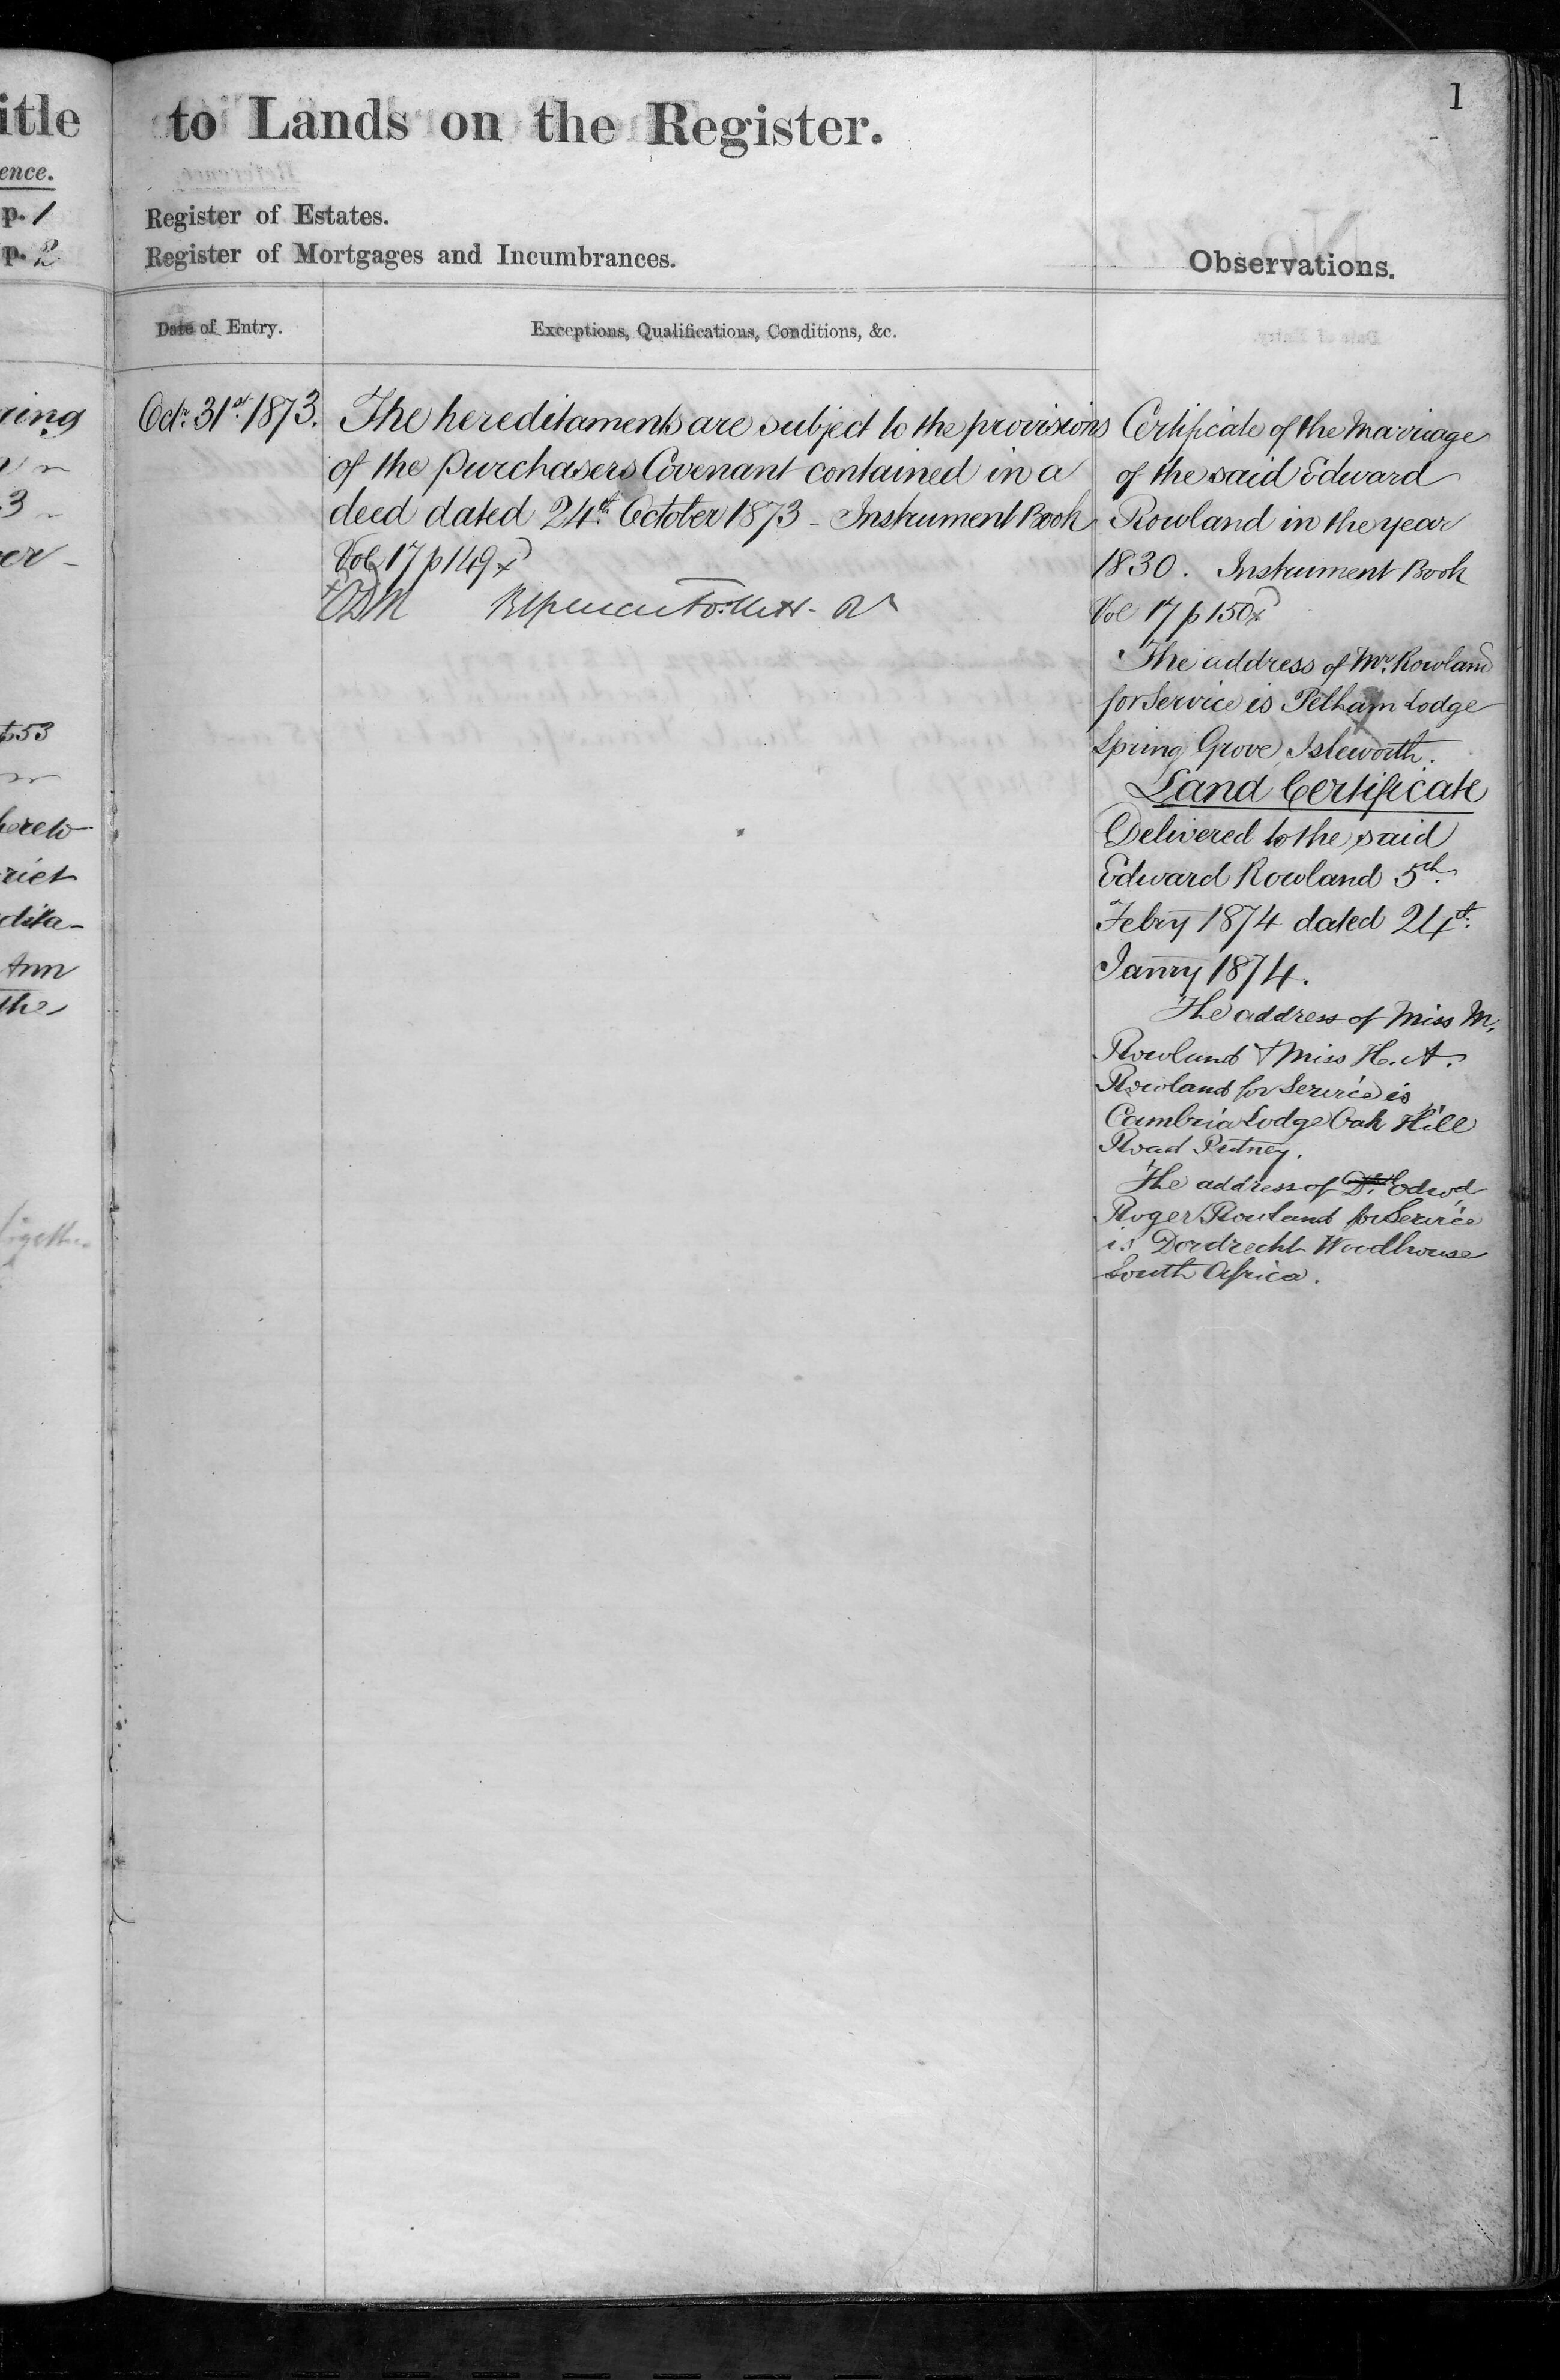 itle
ence.
p. 1
p. 2
3
er
hereto
dita-
Ann
the
1
to Lands on the Register.
Register of Estates.
Register of Mortgages and Incumbrances.
Observations.
Date of Entry.
Exceptions, Qualifications, Conditions, &c.
Octr. 31st. 1873.
The hereditaments are subject to the provisions
of the purchasers Covenant contained in a
deed dated 24th. October 1873 - Instrument Book
Vol 17 p 149
Certificate of the Marriage
of the said Edward
Rowland in the year
1830. Instrument Book
Vol 17 p 150
The address of Mr. Rowland
for Service is Pelham Lodge
Spring Grove, Isleworth.
Land Certificate
Delivered to the said
Edward Rowland 5th.
Febry 1874 dated 21st.
Janry 1874.
The address of Miss M.
Rowland & Miss H. A.
Rowland for Service is
Cambria Lodge Oak Hill
Road Putney.
The address of Dr. Edwd
Roger Rowland for Service
is Dordrecht Woodhouse
South Africa.